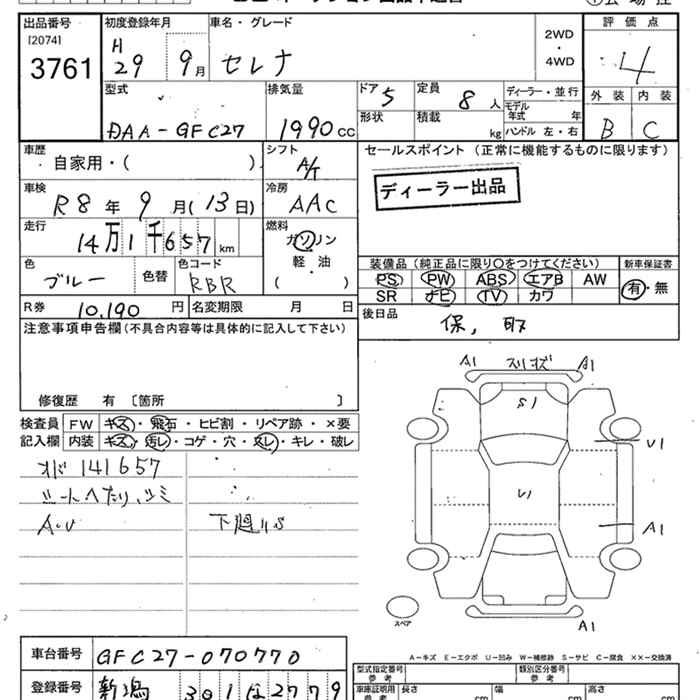 出品番号 初度登録年月 車名・グレード 評価点
[2074]
3761
H
29 9月 セレナ
2WD
・
4WD
4
型式 排気量 ドア 5 定員 8人 ディーラー・並行 外装 内装
モデル年式 年
形状 積載 kg ハンドル 左・右
DAA-GFC27 1990cc B C
車歴 シフト セールスポイント (正常に機能するものに限ります)
自家用・( ) A/T
車検 冷房 ディーラー出品
R8年9月(13日) AAC
走行 燃料
14万1千657km ガソリン
軽・油
( )
色 色替 色コード 装備品(純正品に限り○をつけてください) 新車保証書
ブルー RBR PS PW ABS エアB AW 有・無
SR ナビ TV カワ
R券 10,190円 名変期限 月 日 後日品
保, 取
注意事項申告欄(不具合内容等は具体的に記入して下さい)
修復歴 有 〔箇所 〕
検査員 FW キズ・飛石・ヒビ割・リペア跡・×要
記入欄 内装 キズ・汚レ・コゲ・穴・スレ・キレ・破レ
オド141657
シートヘたり、シミ
A.U 下廻りS
A1 スリキズ A1
S1
U1
U1
A1
A1
スペア
A-キズ E-エクボ U-凹み W-補修跡 S-サビ C-腐食 ××-交換済
車台番号 GFC27-070770
型式指定番号 類別区分番号
参考 参考
登録番号 新潟 301 は 2779
車庫証明用 長さ 幅 高さ
参考 cm cm cm